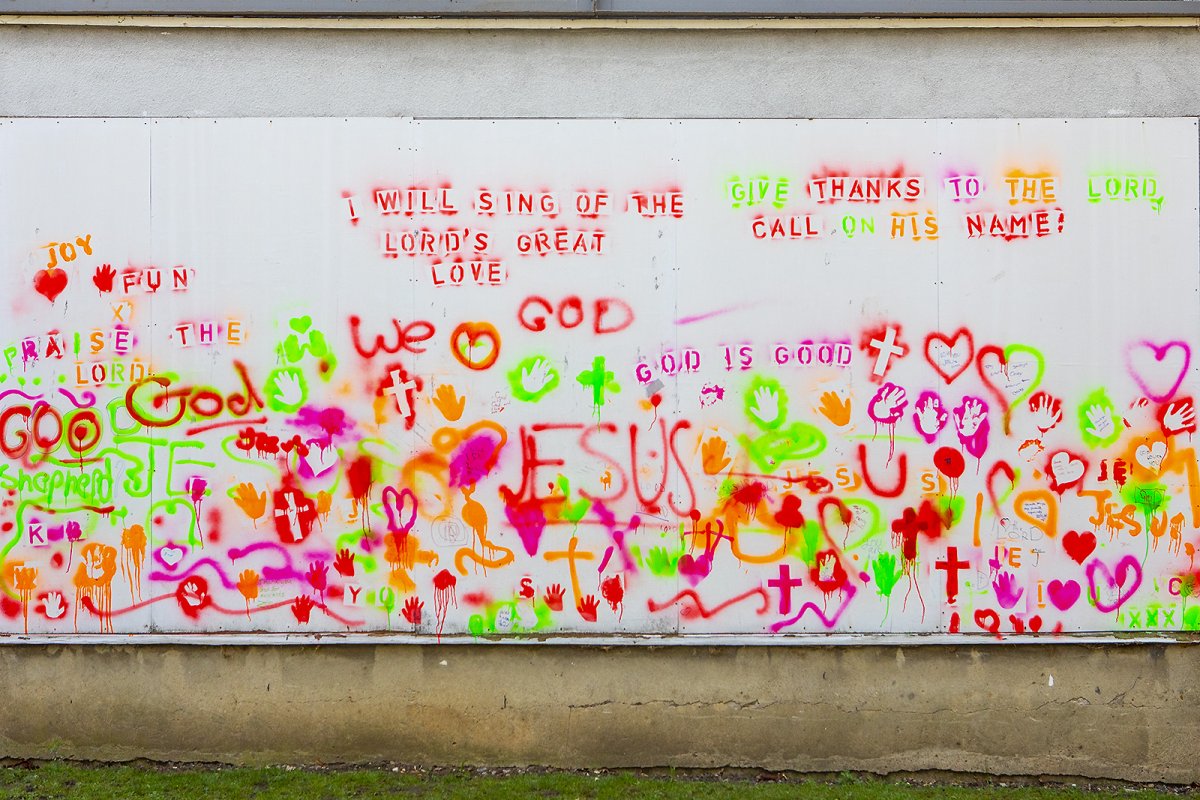 I WILL SING OF THE
LORD'S GREAT
LOVE
GIVE THANKS TO THE LORD,
CALL ON HIS NAME!
JOY
FUN
X
PRAISE THE
LORD
We
GOD
GOD IS GOOD
GOOD
God
Shepherd
JESUS
JESUS
U
JESUS
JE
JESUS
K
J
YO
S
LORD